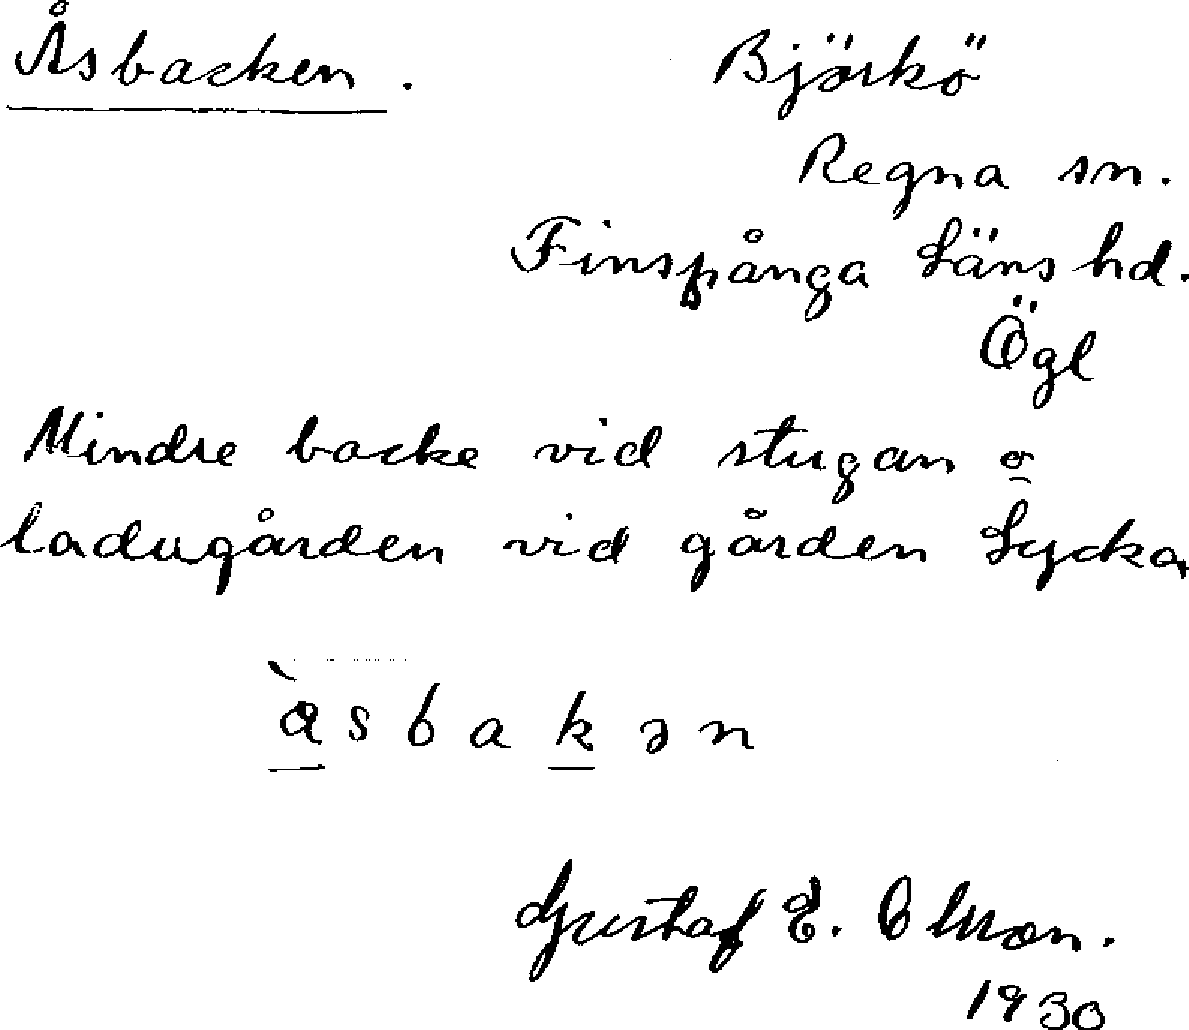 Åsbacken. Björkö
Regna sn.
Finspånga Läns hd.
Ögl
Mindre backe vid stugan o
ladugården vid gården Lycka
àsbakən
Gustaf E. Olsson.
1930